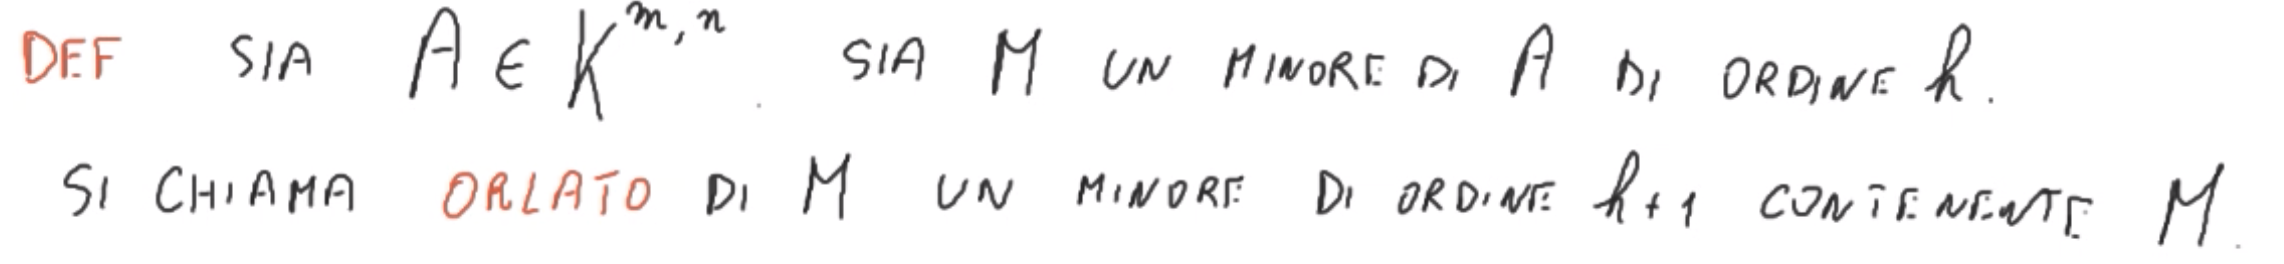 DEF SIA A ∈ K^{m,n}. SIA M UN MINORE DI A DI ORDINE h.
SI CHIAMA ORLATO DI M UN MINORE DI ORDINE h+1 CONTENENTE M.